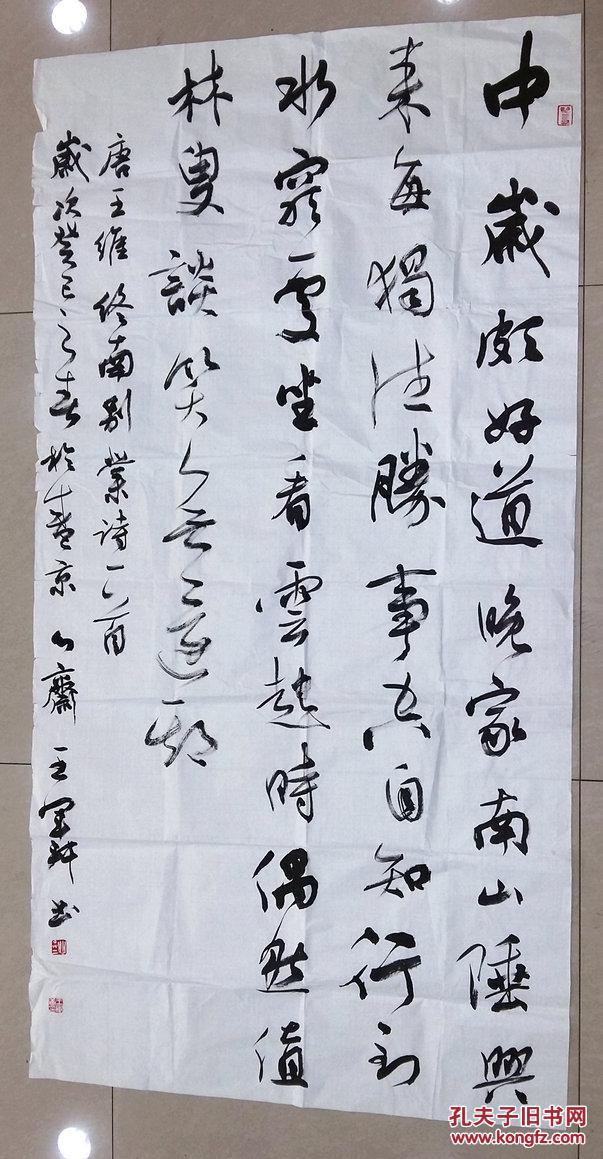 中歲頗好道晚家南山陲興
来每獨往勝事空自知行到
水窮處坐看雲起時偶然值
林叟談笑無還期
唐王維終南别業詩一首
歲次癸巳之春於盛京齋王军书
孔夫子旧书网
www.kongfz.com